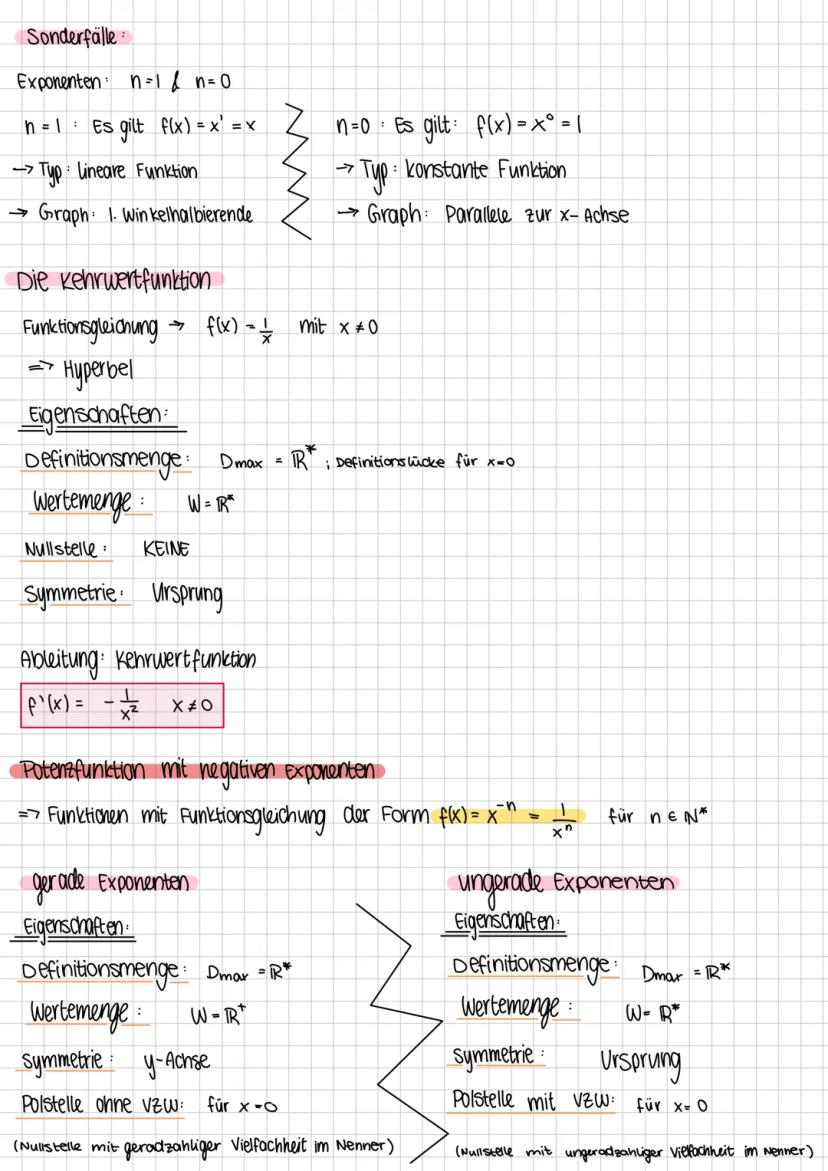 Sonderfälle:
Exponenten: n=1 & n=0
n=1 : Es gilt f(x) = x¹ = x
→ Typ: lineare Funktion
→ Graph: 1. Winkelhalbierende
n=0 : Es gilt: f(x) = x⁰ = 1
→ Typ: konstante Funktion
→ Graph: Parallele zur x-Achse
Die Kehrwertfunktion
Funktionsgleichung → f(x) = 1/x mit x ≠ 0
=> Hyperbel
Eigenschaften:
Definitionsmenge: Dmax = ℝ* ; Definitionslücke für x=0
Wertemenge: W = ℝ*
Nullstelle: KEINE
Symmetrie: Ursprung
Ableitung: Kehrwertfunktion
f'(x) = - 1/x² x ≠ 0
Potenzfunktion mit negativen Exponenten
=> Funktionen mit Funktionsgleichung der Form f(x) = x⁻ⁿ = 1/xⁿ für n ∈ ℕ*
gerade Exponenten
Eigenschaften:
Definitionsmenge: Dmax = ℝ*
Wertemenge: W = ℝ⁺
Symmetrie: y-Achse
Polstelle ohne VZW: für x=0
(Nullstelle mit geradzahliger Vielfachheit im Nenner)
ungerade Exponenten
Eigenschaften:
Definitionsmenge: Dmax = ℝ*
Wertemenge: W = ℝ*
Symmetrie: Ursprung
Polstelle mit VZW: für x=0
(Nullstelle mit ungeradzahliger Vielfachheit im Nenner)